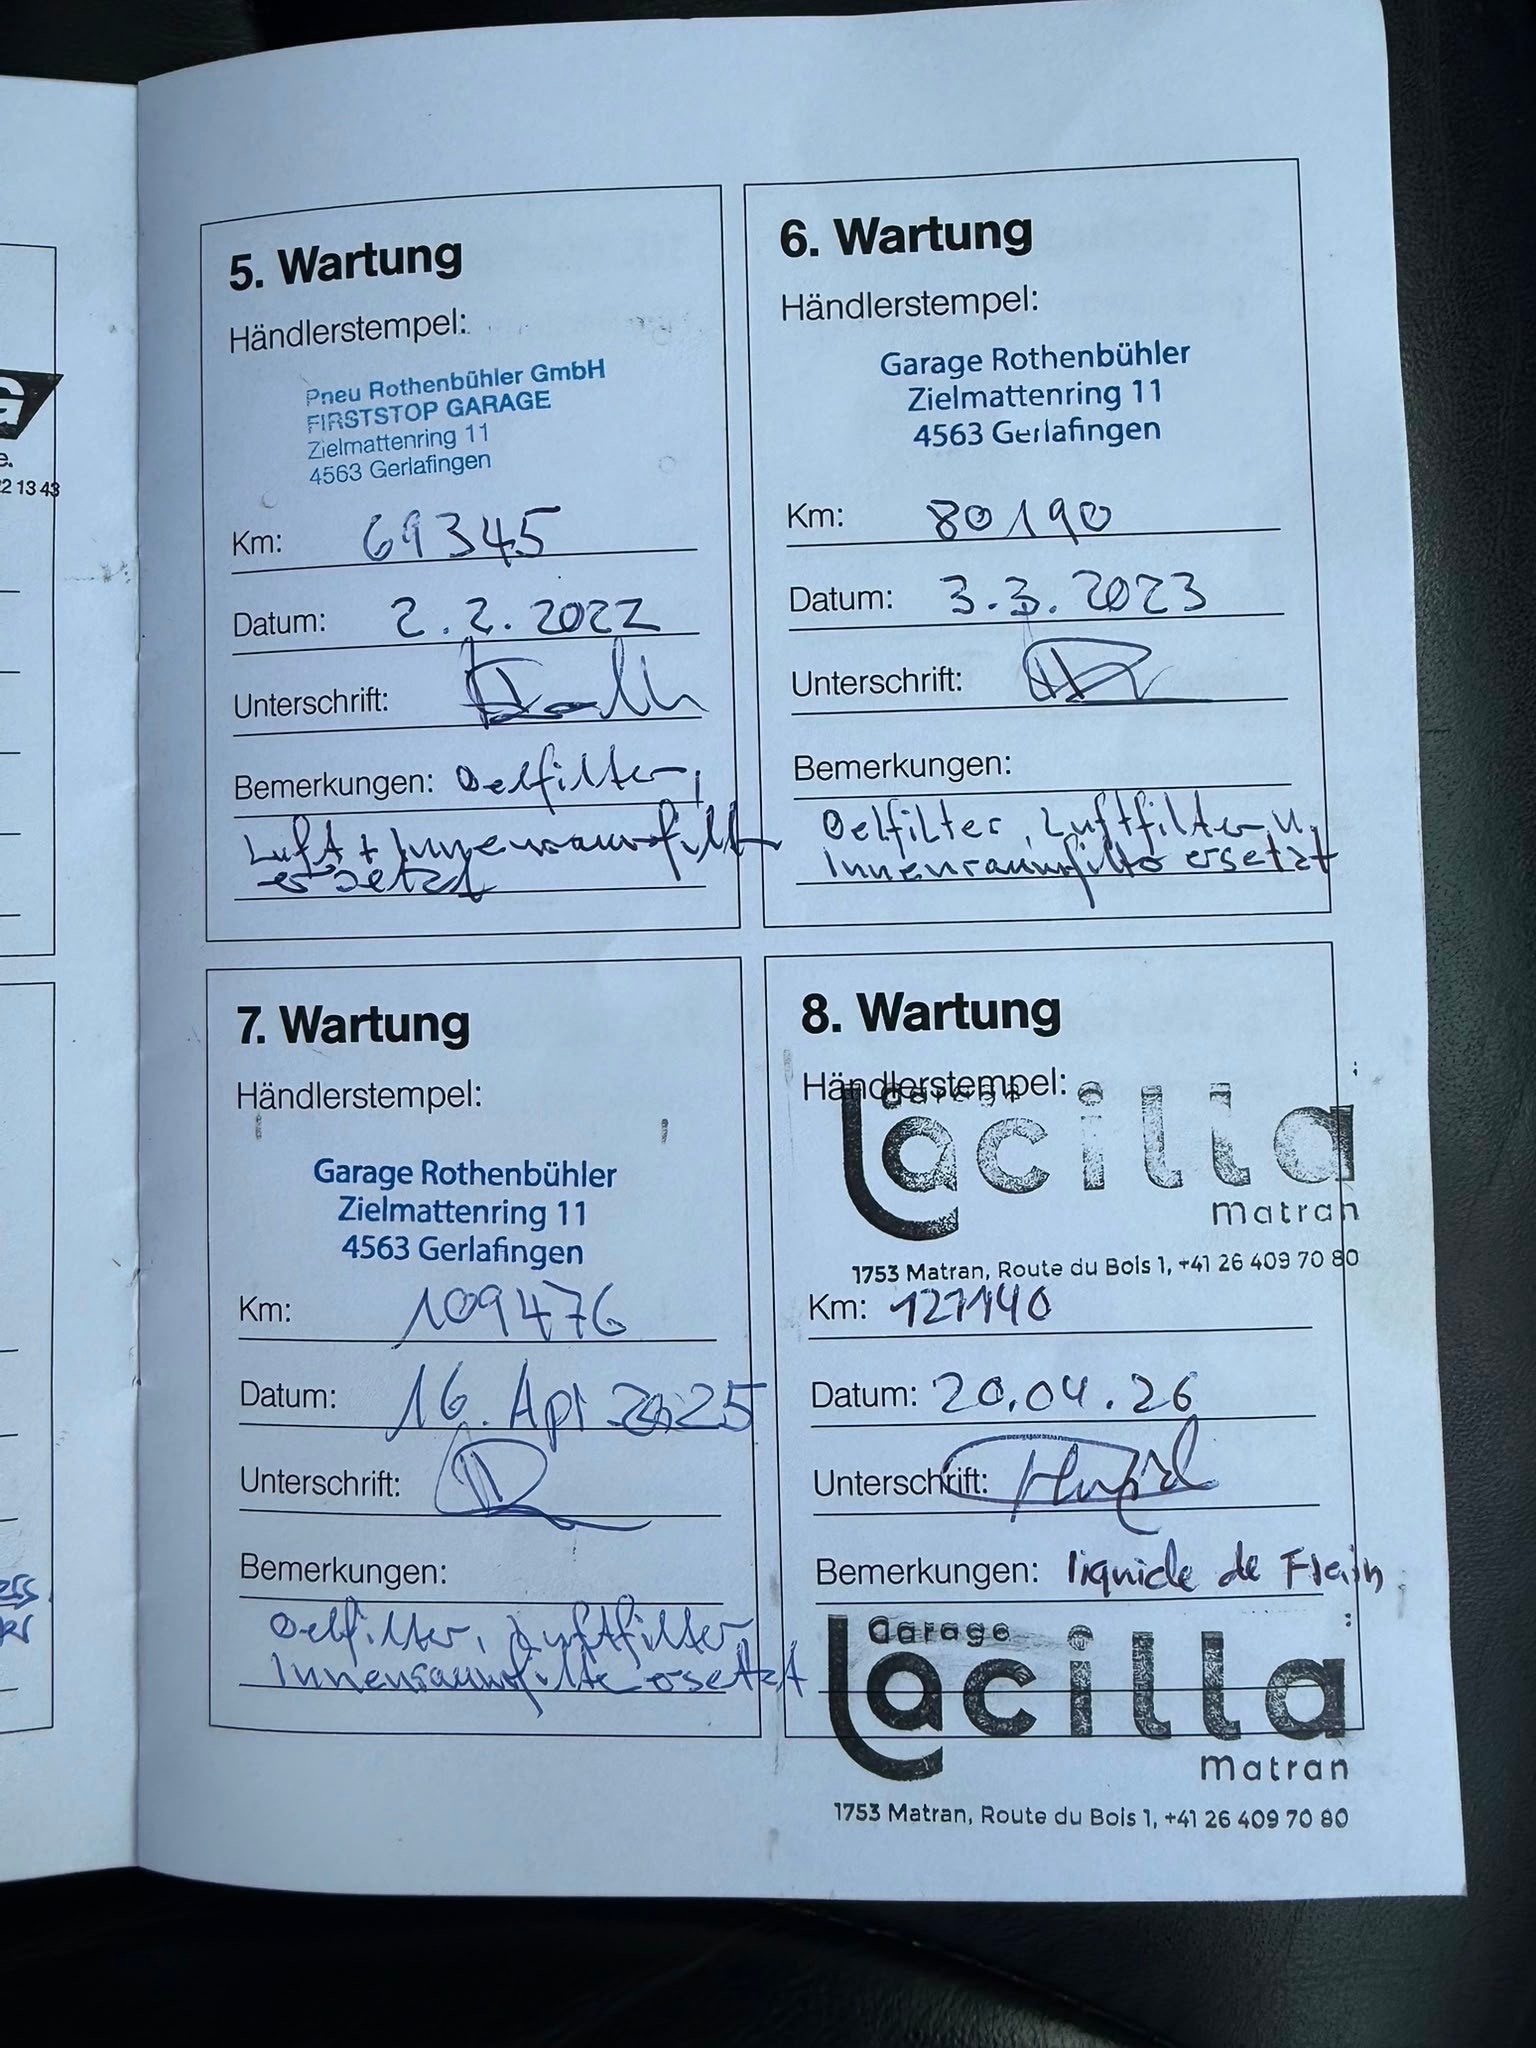 e.
22 13 43
5. Wartung
Händlerstempel:
Pneu Rothenbühler GmbH
FIRSTSTOP GARAGE
Zielmattenring 11
4563 Gerlafingen
Km: 69345
Datum: 2.2.2022
Unterschrift:
Bemerkungen: Oelfilter,
Luft + Innenraumfilter
ersetzt
6. Wartung
Händlerstempel:
Garage Rothenbühler
Zielmattenring 11
4563 Gerlafingen
Km: 80190
Datum: 3.3.2023
Unterschrift:
Bemerkungen:
Oelfilter, Luftfilter u.
Innenraumfilter ersetzt
7. Wartung
Händlerstempel:
Garage Rothenbühler
Zielmattenring 11
4563 Gerlafingen
Km: 109476
Datum: 16. Apr 2025
Unterschrift:
Bemerkungen:
Oelfilter, Luftfilter
Innenraumfilter ersetzt
8. Wartung
Händlerstempel:
Garage
Lacilla
Matran
1753 Matran, Route du Bois 1, +41 26 409 70 80
Km: 127140
Datum: 20.04.26
Unterschrift:
Bemerkungen: liquide de Frein
Garage
Lacilla
Matran
1753 Matran, Route du Bois 1, +41 26 409 70 80